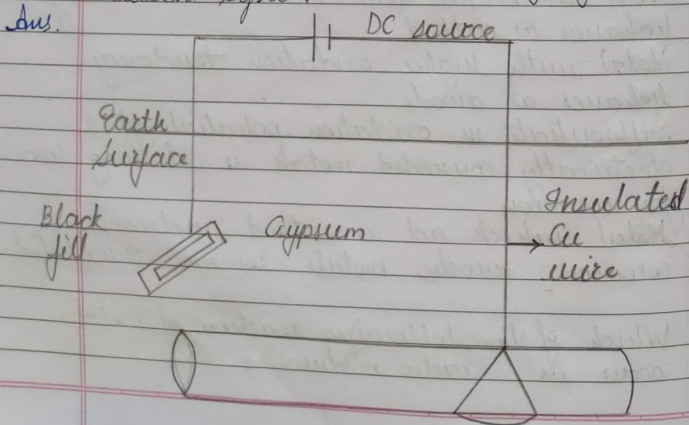 Ans.
DC source
Earth
Surface
Black
fill
Gypsum
Insulated
Cu
wire